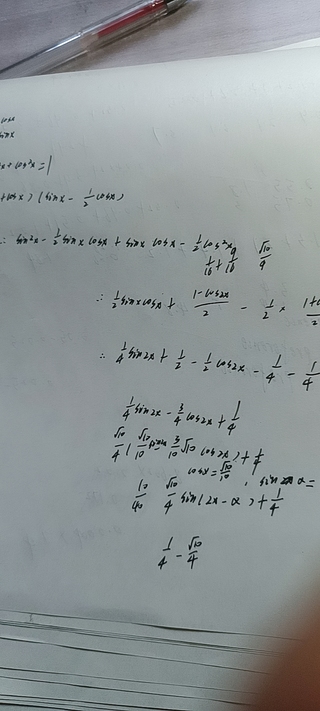 cosx
sinx
x + cos²x = 1
+ cosx) (sinx - 1/2 cosx)
∴ sin²x - 1/2 sinx cosx + sinx cosx - 1/2 cos²x
1/16 + 9/16 √10/9
∴ 1/2 sinx cosx + (1-cos2x)/2 - 1/2 × (1+c
∴ 1/4 sin2x + 1/2 - 1/2 cos2x - 1/4 - 1/4
1/4 sin2x - 3/4 cos2x + 1/4
√10/4 ( √10/10 sin - 3/10 √10 cos2x) + 1/4
cosα = √10/10 , sin α =
10/40 √10/4 sin(2x - α) + 1/4
1/4 - √10/4